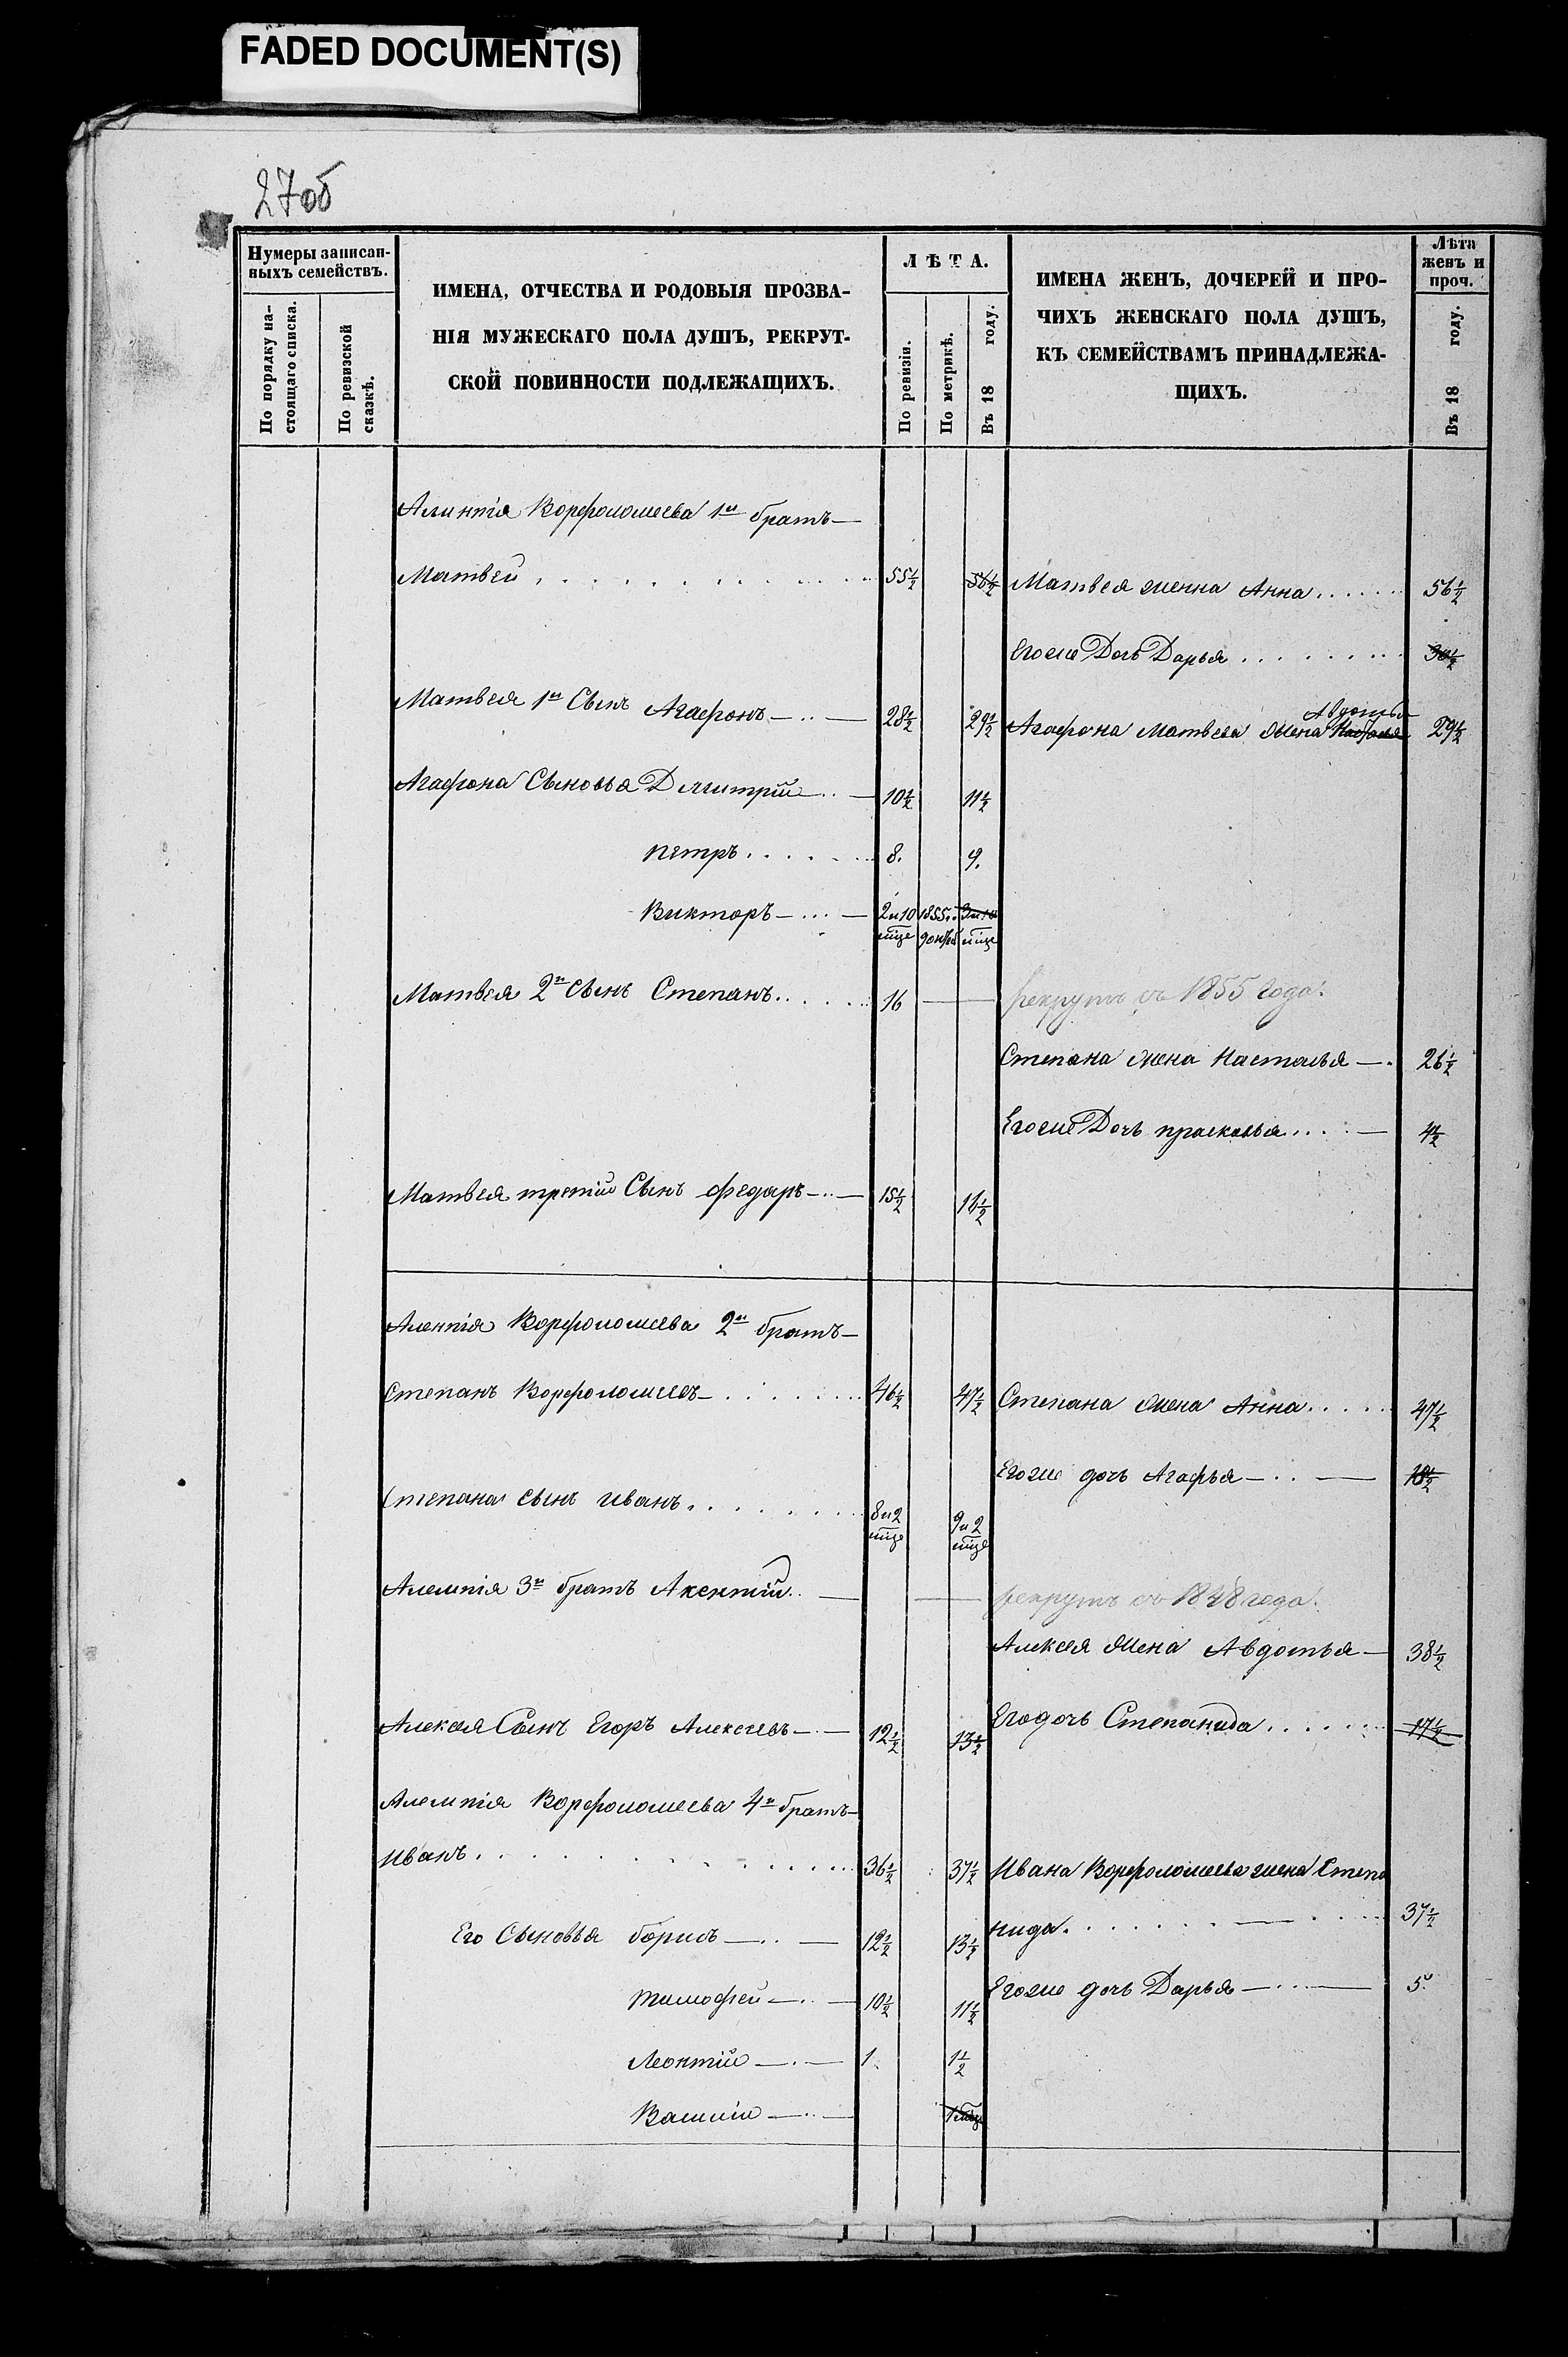 FADED DOCUMENT(S)
27об
Нумеры записан-
ныхъ семействъ.
По порядку на-
стоящаго списка.
По ревизской
сказкѣ.
ИМЕНА, ОТЧЕСТВА И РОДОВЫЯ ПРОЗВА-
НІЯ МУЖЕСКАГО ПОЛА ДУШЪ, РЕКРУТ-
СКОЙ ПОВИННОСТИ ПОДЛЕЖАЩИХЪ.
ЛѢТА.
По ревизіи.
По метрикѣ.
Въ 18 году.
ИМЕНА ЖЕНЪ, ДОЧЕРЕЙ И ПРО-
ЧИХЪ ЖЕНСКАГО ПОЛА ДУШЪ,
КЪ СЕМЕЙСТВАМЪ ПРИНАДЛЕЖА-
ЩИХЪ.
Лѣта
женъ и
проч.
Въ 18 году.
Ворфоломеева 1й братъ —
Матвей 55½ 56½ Матвея женна Анна 56½
Егоже Дочь Дарья 30½
Матвея 1й Сынъ Агафонъ 28½ 29½ Агафона Матвеева жена Авдотья 29½
Агафона Сыновья Дмитрій 10½ 11½
петръ 8. 9.
Викторъ 2 и 10 мцо 1855 3 и 10 мцо
Матвея 2й Сынъ Степанъ 16 — рекрутъ съ 1855 года.
Степана жена Насталья — 26½
Егоже Дочь прасковья 4½
Матвея третій Сынъ федаръ 15½ 16½
Ворфоломеева 2й братъ —
Степанъ Ворфоломеевъ 46½ 47½ Степана жена Анна 47½
Егоже дочь Агафья 18½
Степана сынъ иванъ 8 и 2 мцо 9 и 2 мцо
Алемпія 3й братъ Акентій — рекрутъ съ 1848 года.
Алексея жена Авдотья — 38½
Алексея Сынъ Егоръ Алексеевъ 12½ 13½ Егодочь Степанида 17½
Алемпія Ворфоломеева 4й братъ —
Иванъ 36½ 37½ Ивана Ворфоломеева жена Степа
нида 37½
Его Сыновья борисъ 12½ 13½
Егоже дочь Дарья 5.
тимофей 10½ 11½
Леонтій 1. 1½